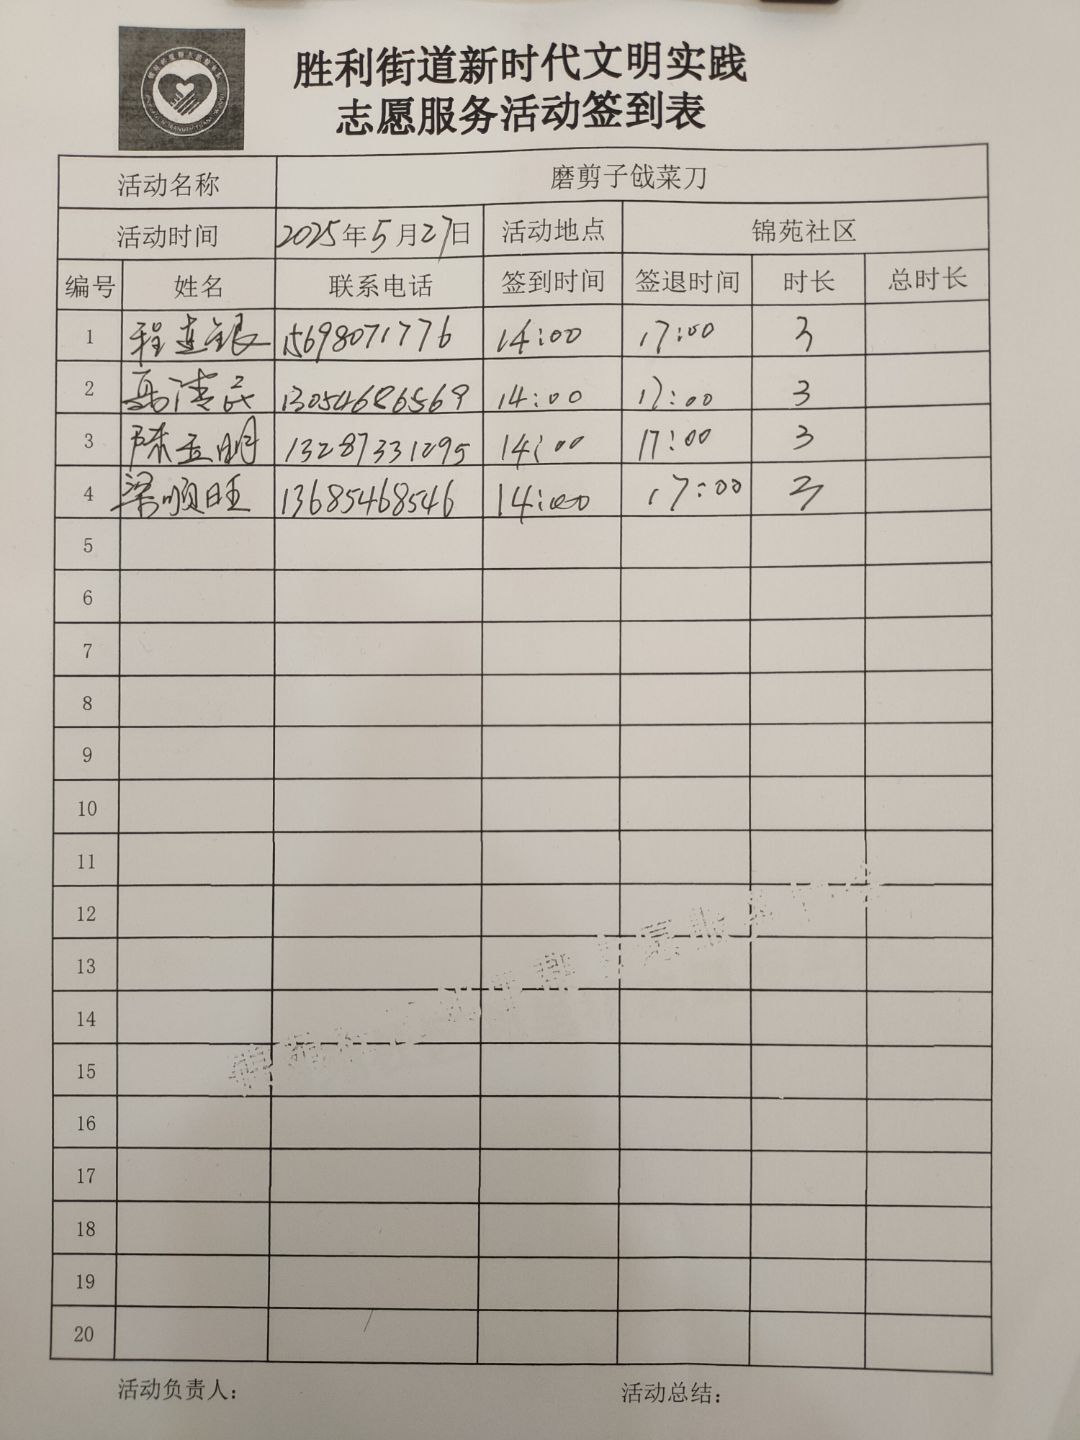 胜利街道新时代文明实践
志愿服务活动签到表
活动名称 磨剪子戗菜刀
活动时间 2025年5月27日 活动地点 锦苑社区
编号 姓名 联系电话 签到时间 签退时间 时长 总时长
1 程连银 15698071776 14:00 17:00 3
2 高清民 13054686569 14:00 17:00 3
3 陈玉明 13287331295 14:00 17:00 3
4 梁顺旺 13685468546 14:00 17:00 3
5
6
7
8
9
10
11
12
13
14
15
16
17
18
19
20
活动负责人： 活动总结：